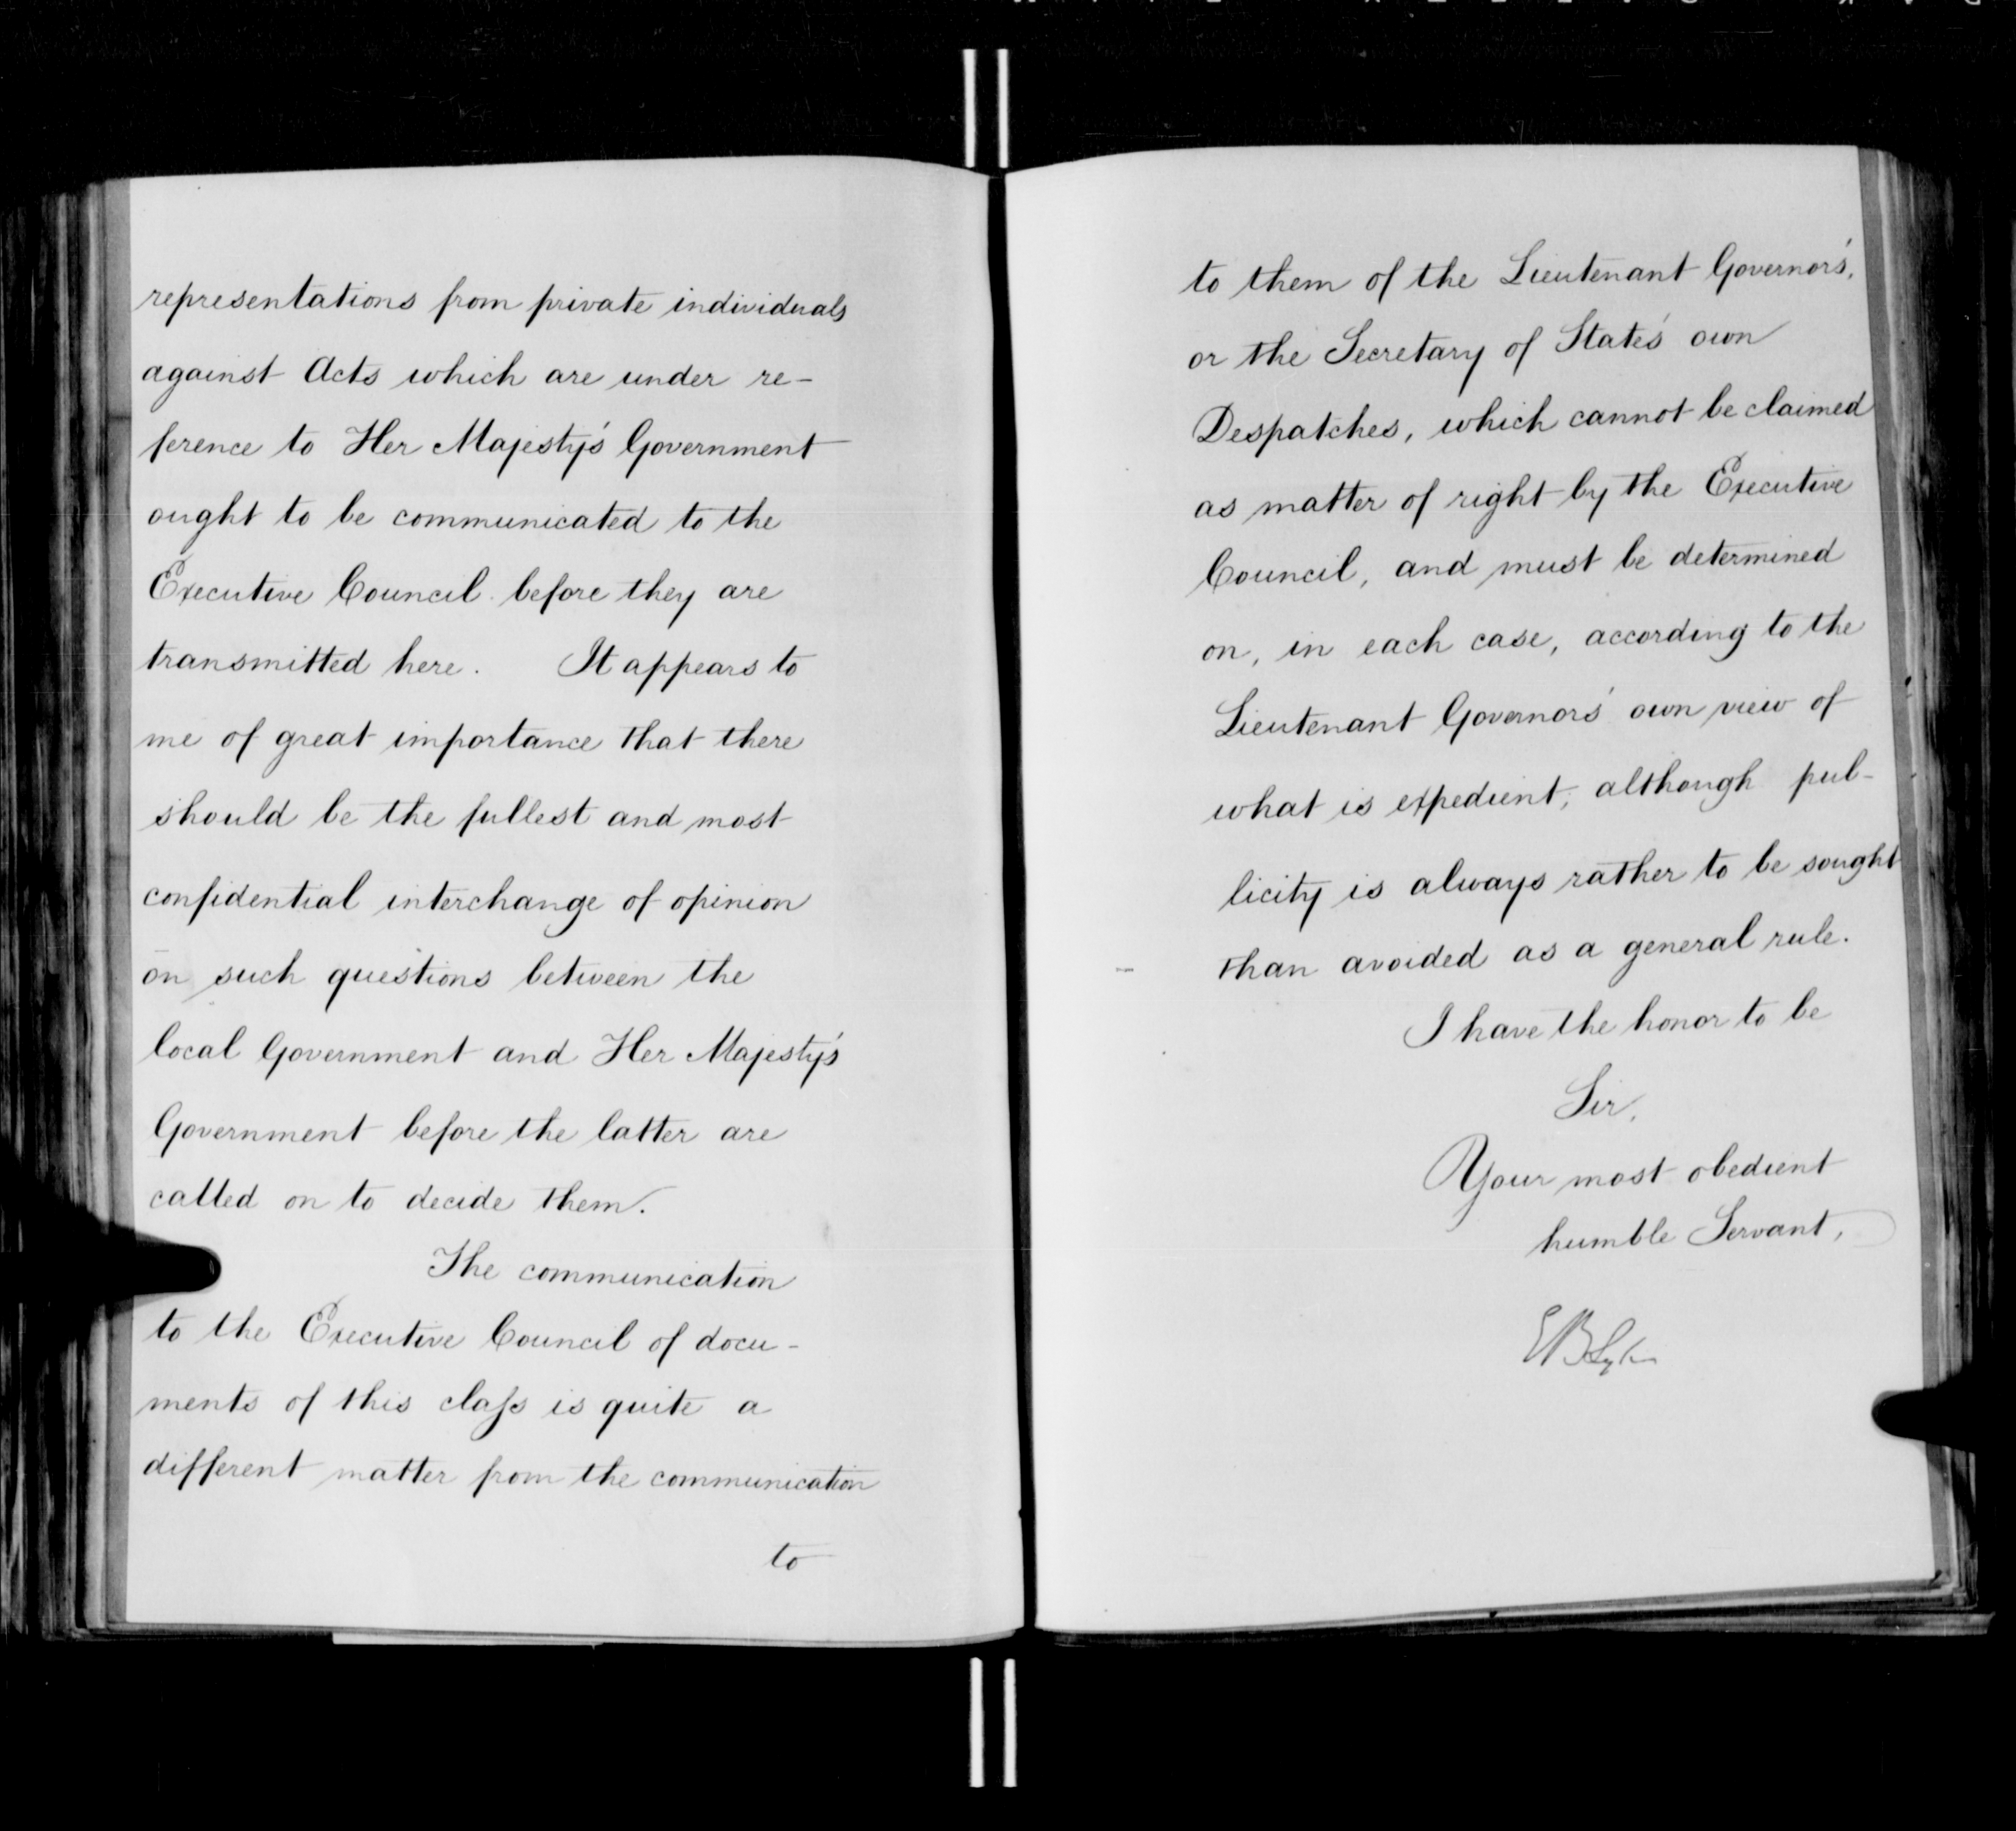 representations from private individuals
against Acts which are under re-
ference to Her Majesty's Government
ought to be communicated to the
Executive Council before they are
transmitted here. It appears to
me of great importance that there
should be the fullest and most
confidential interchange of opinion
on such questions between the
local Government and Her Majesty's
Government before the latter are
called on to decide them.
The communication
to the Executive Council of docu-
ments of this class is quite a
different matter from the communication
to
to them of the Lieutenant Governor's,
or the Secretary of State's own
Despatches, which cannot be claimed
as matter of right by the Executive
Council, and must be determined
on, in each case, according to the
Lieutenant Governor's own view of
what is expedient; although pub-
licity is always rather to be sought
than avoided as a general rule.
I have the honor to be
Sir,
Your most obedient
humble Servant,